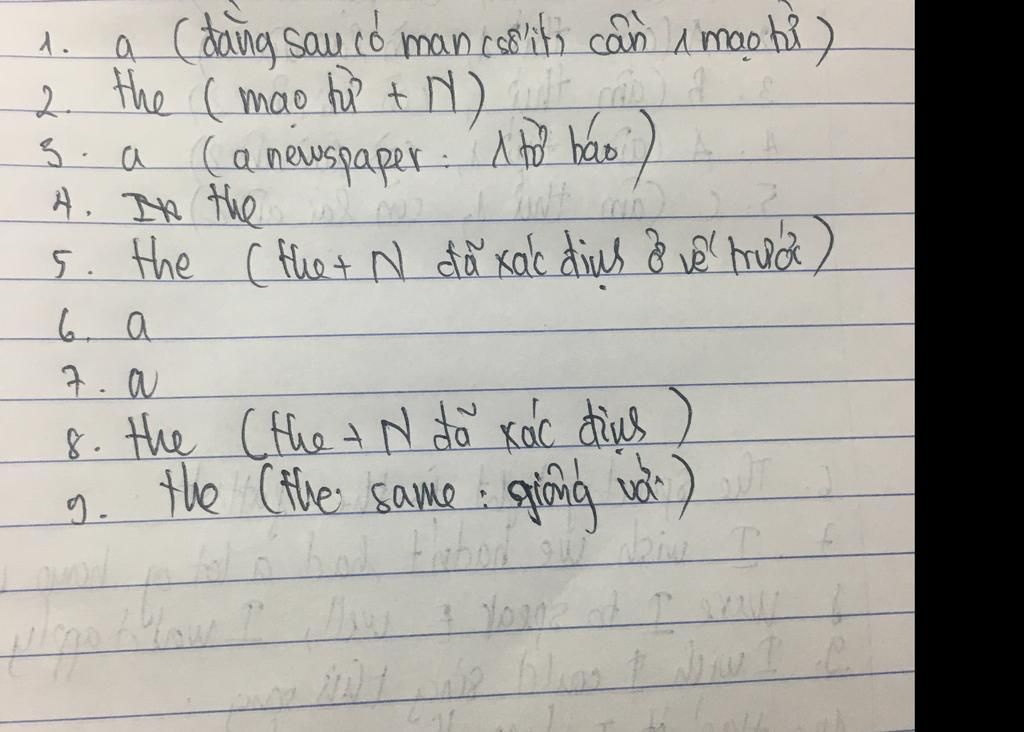 1. a (đằng sau có man (số ít) cần 1 mạo từ)
2. the (mạo từ + N)
3. a (a newspaper : 1 tờ báo)
4. the
5. the (the + N đã xác định ở vế trước)
6. a
7. a
8. the (the + N đã xác định)
9. the (the same : giống với)